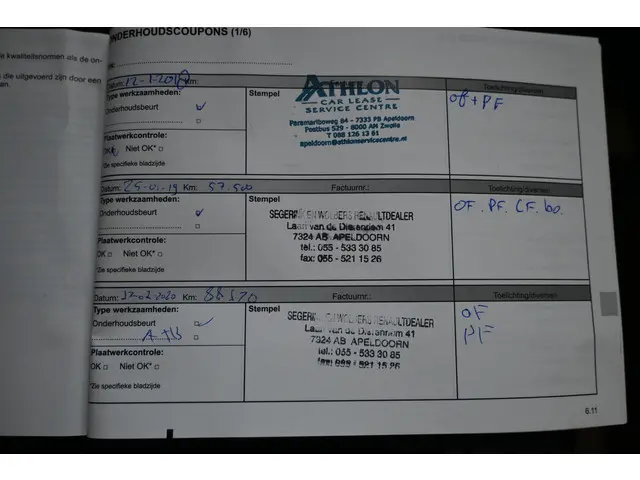 e kwaliteitsnormen als de om-
die uitgevoerd zijn door een
en.
ONDERHOUDSCOUPONS (1/6)
Km:
Toelichting/diversen
Type werkzaamheden:
Onderhoudsbeurt
Stempel
ATHLON
CAR LEASE
SERVICE CENTRE
Paramariboweg 84 - 7333 PB Apeldoorn
Postbus 529 - 8000 AM Zwolle
T 088 126 13 81
apeldoorn@athlonservicecentre.nl
of + PF
Plaatwerkcontrole:
OK Niet OK*
*Zie specifieke bladzijde
Datum: 25-01-19 Km: 57.500
Factuurnr.:
Toelichting/diversen
Type werkzaamheden:
Onderhoudsbeurt
Stempel
SEGERINK EN WOLBERS RENAULTDEALER
Laan van de Dierenriem 41
7324 AB APELDOORN
tel.: 055 - 533 30 85
fax: 055 - 521 15 26
OF. PF. CF.
Plaatwerkcontrole:
OK Niet OK*
*Zie specifieke bladzijde
Datum: 17-02-2020 Km: 88570
Factuurnr.:
Toelichting/diversen
Type werkzaamheden:
Onderhoudsbeurt
Stempel
SEGERINK EN WOLBERS RENAULTDEALER
Laan van de Dierenriem 41
7324 AB APELDOORN
tel.: 055 - 533 30 85
fax: 055 - 521 15 26
OF
PF
Plaatwerkcontrole:
OK Niet OK*
*Zie specifieke bladzijde
6.11